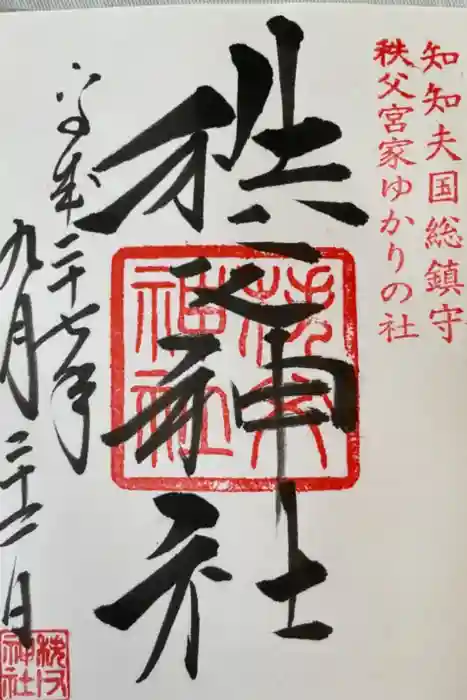 知知夫国総鎮守
秩父宮家ゆかりの社
秩父神社
秩父
神社
平成二十七年
九月二十一日
秩父
神社